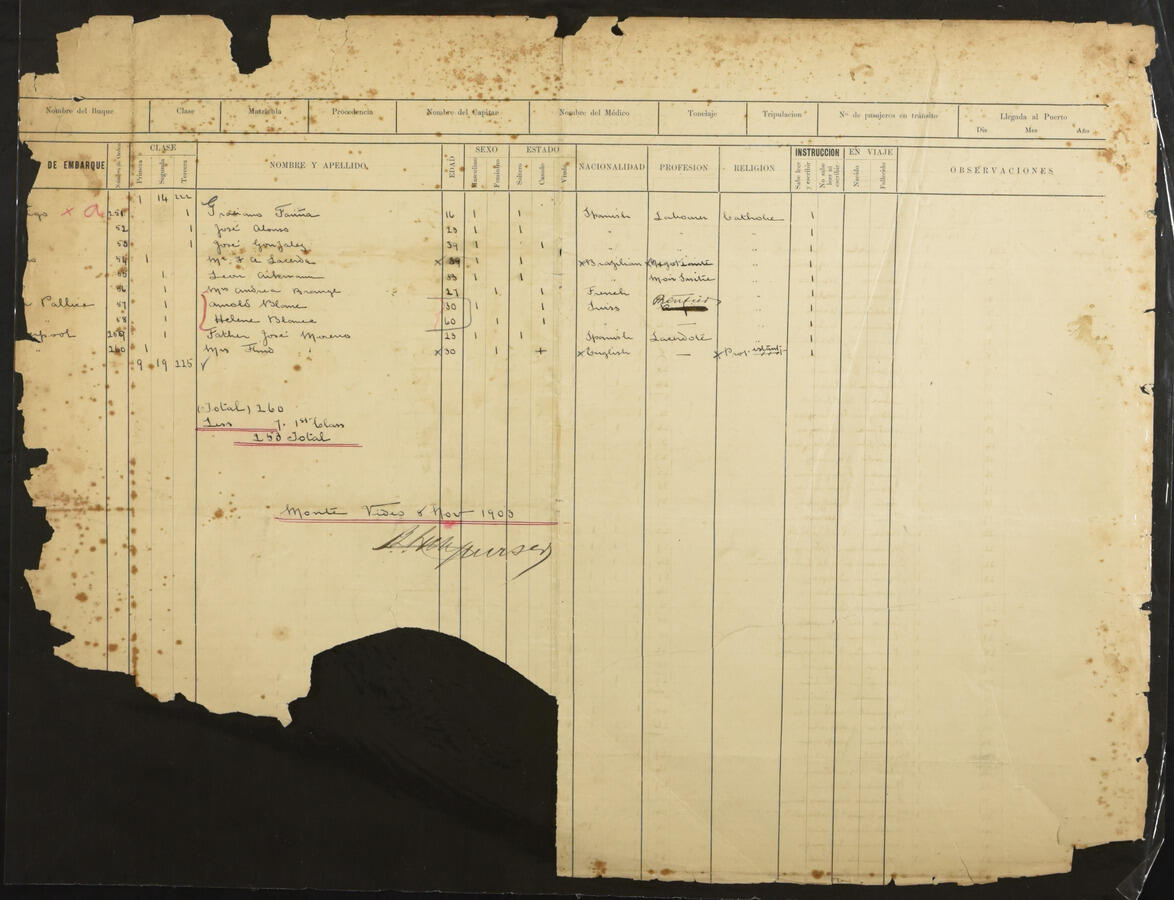 Nombre del Buque Clase Matrícula Procedencia Nombre del Capitan Nombre del Médico Tonelaje Tripulacion Nº de pasajeros en tránsito Llegada al Puerto
Dia Mes Año
DE EMBARQUE CLASE NOMBRE Y APELLIDO EDAD SEXO ESTADO NACIONALIDAD PROFESION RELIGION INSTRUCCION EN VIAJE OBSERVACIONES
Primera Segunda Tercera Masculino Femenino Soltero Casado Viudo Sabe leer y escribir No sabe leer ni escribir Nacido Fallecido
1 14 222
251 1 Fariña 16 1 1 Spanish Labourer Catholic 1
52 1 José Alonso 23 1 1 " " " 1
53 1 José Gonzalez 39 1 1 " " " 1
54 1 Mr F A Lacerda x 39 1 1 x Brazilian x " 1
55 1 Leon 33 1 1 " " 1
56 1 Mrs Andrea 27 1 1 French " 1
Pallice 57 1 Arnold Blanc 30 1 1 Swiss " 1
58 1 Helene Blanc 60 1 1 " " 1
259 1 Father José Moreno 23 1 1 Spanish Lacerdoté " 1
260 1 Mrs x 30 1 + x English — x 1
9 19 225 √
(Total) 260
Less 7. 1st Class
253 Total
Monte Video 8 Nov 1903
purser